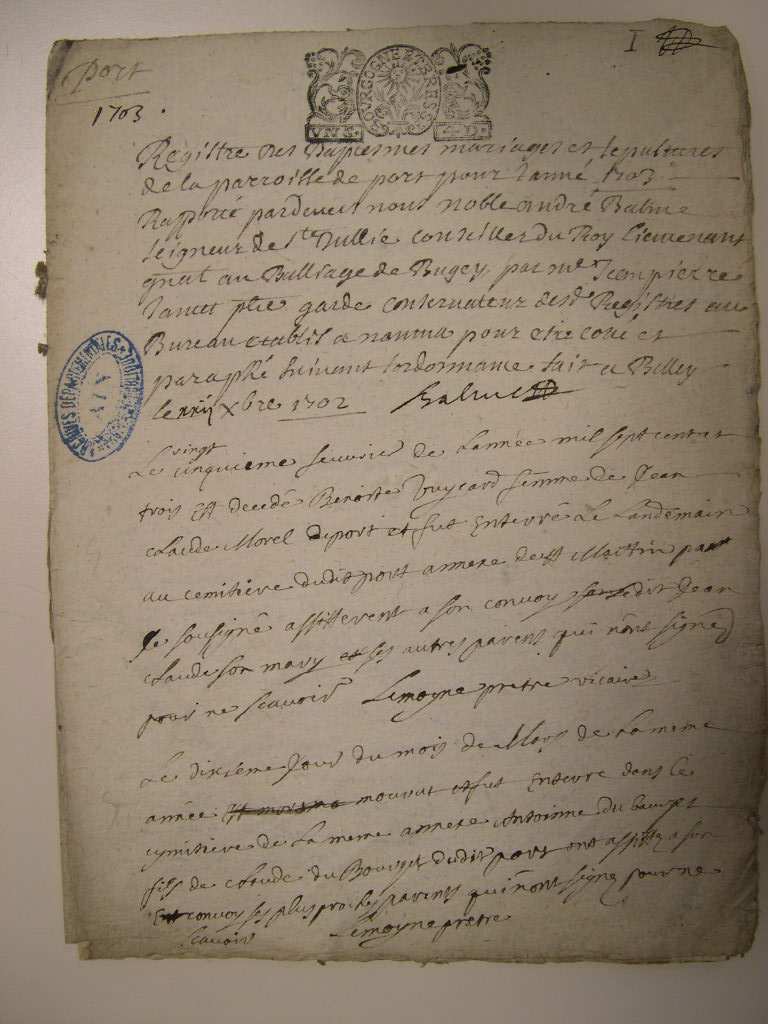 Port
1703 .
I
BOURGOGNE ET BRESSE
VN S. 4 D.
Registre des Baptesmes mariages et sepultures
de la parroisse de port pour Lanné 1703
Rapporté pardevers nous noble andré Balme
seigneur de Ste Jullie conseiller du Roy Lieutenant
gnal au Balliage de Bugey par mre Jean pierre
Janet pbre garde conservateur desd Registres au
Bureau etablis a nantua pour etre cotté et
paraphé suivant Lordonnance fait a Belley
le xxij xbre 1702 Balme
ARCHIVES DÉPARTEMENTALES
AIN
vingt
Le cinquieme feuvrier de Lannée mil sept cent et
trois Est decedé Benoite Vuycard femme de Jean
claude Morel de port et fut Enterré Le Landemain
au cemitiere dudit port annexe de St Martin par
Je sousigné assisterent a son convoy ledit Jean
claude son mary et ses autres parents qui nont signé
pour ne scavoir Lemoyne pretre vicaire
Le dixieme Jour du mois de Mars de La meme
année mourut et fut Enterre dans le
cymitiere de La meme annexe Antoinne du bourget
fils de claude du Bourget dudit port ont assisté a son
convoy ses plus proches parents qui nont signe pour ne
scavoir Lemoyne pretre